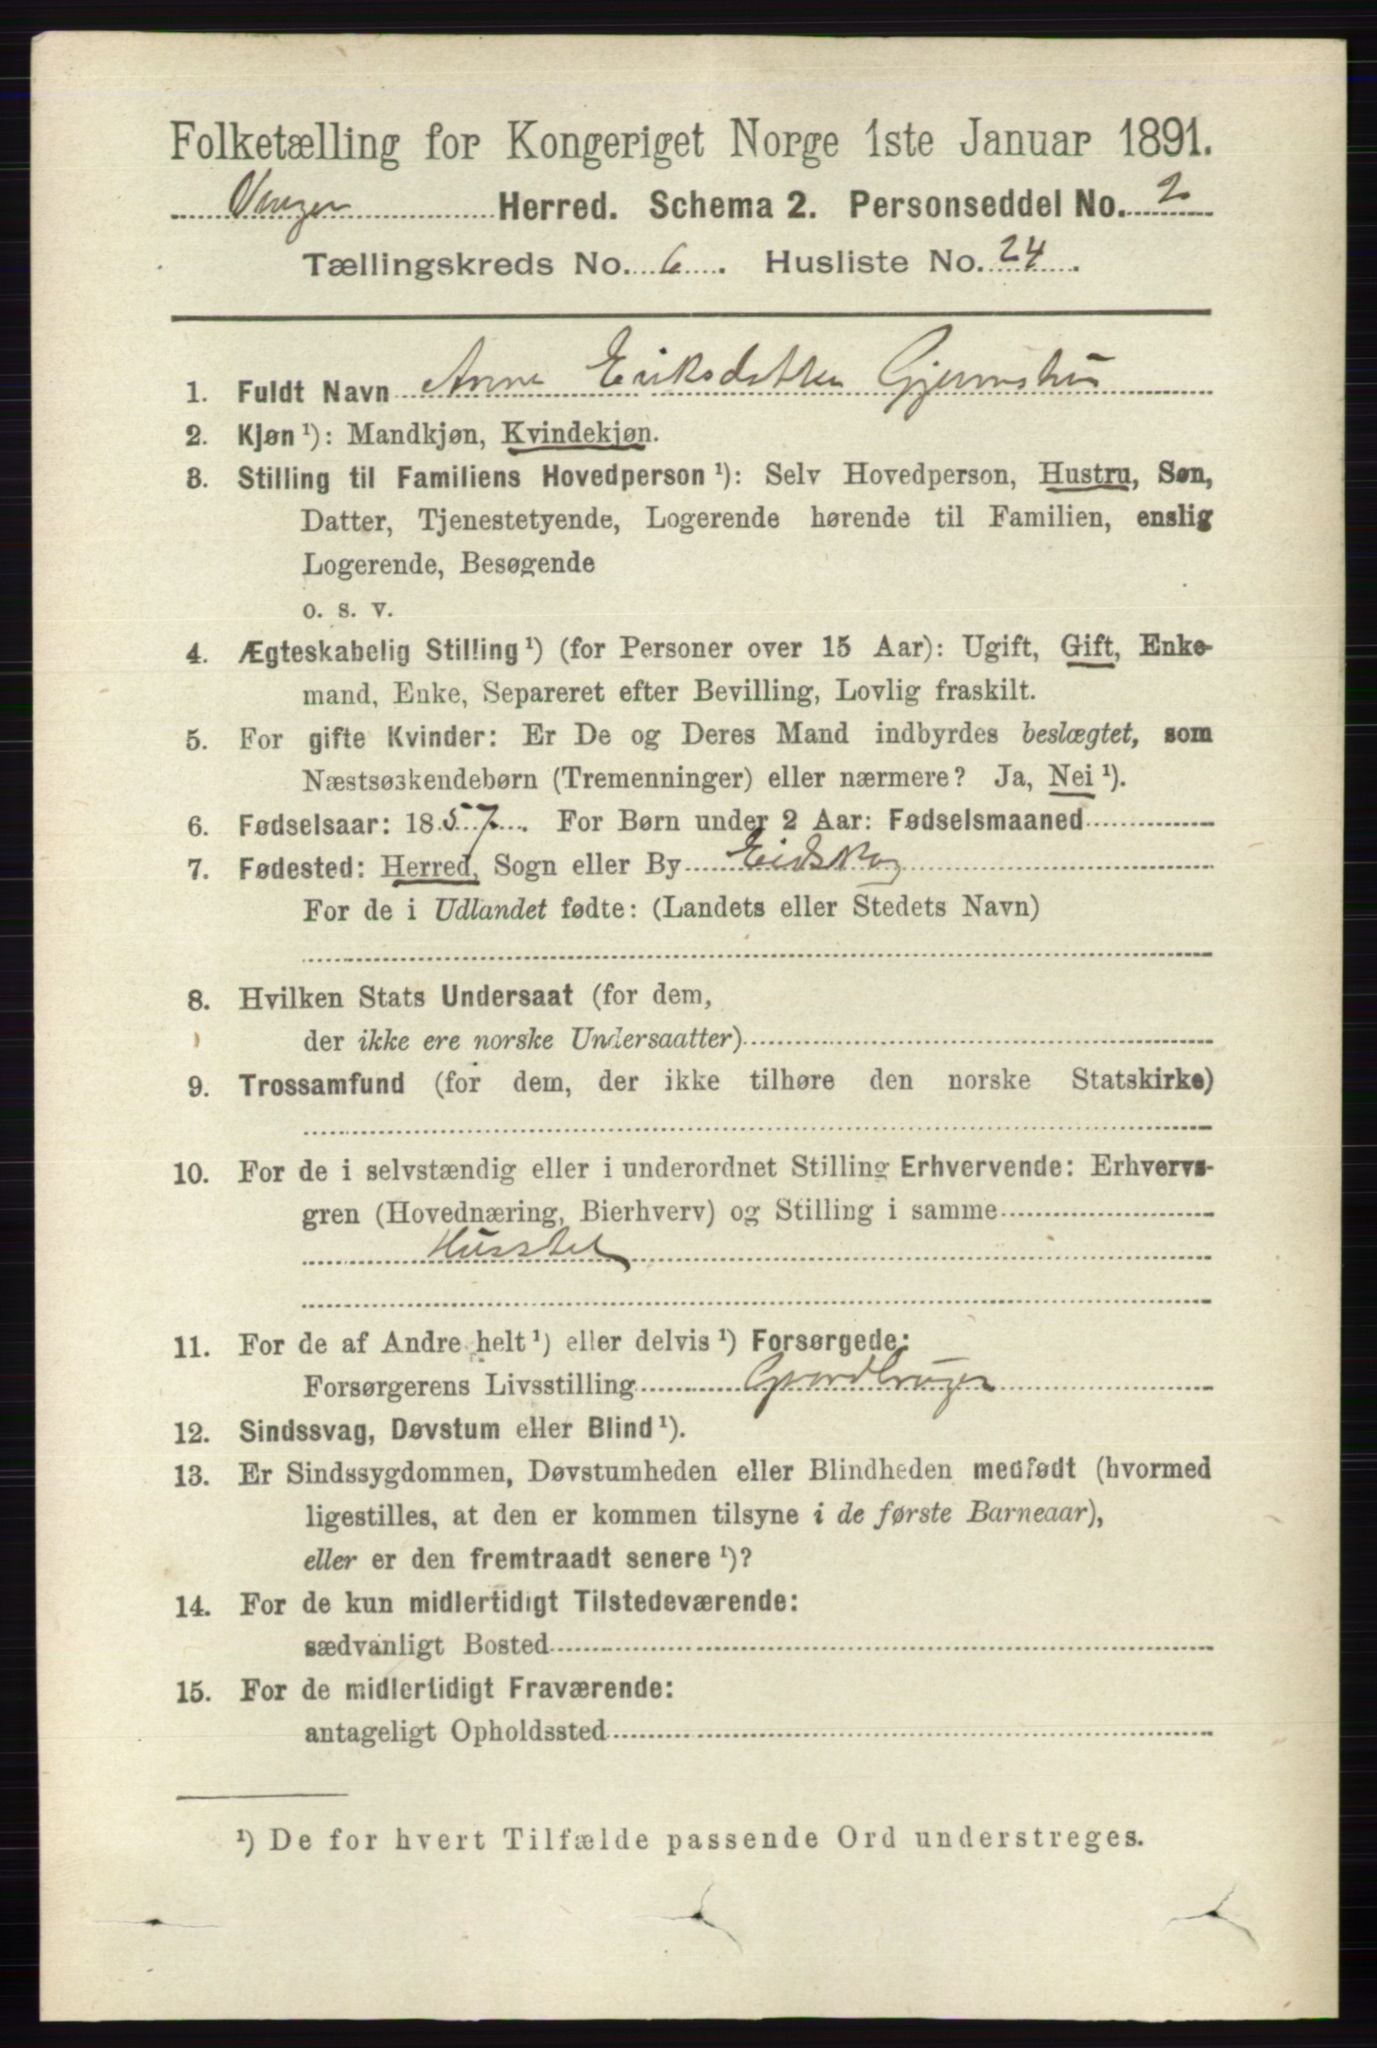 Folketælling for Kongeriget Norge 1ste Januar 1891.
Vinger Herred. Schema 2. Personseddel No. 2
Tællingskreds No. 6. Husliste No. 24.
1. Fuldt Navn Anne Eriksdatter Gjermshus
2. Kjøn ¹): Mandkjøn, Kvindekjøn.
3. Stilling til Familiens Hovedperson ¹): Selv Hovedperson, Hustru, Søn,
Datter, Tjenestetyende, Logerende hørende til Familien, enslig
Logerende, Besøgende
o. s. v.
4. Ægteskabelig Stilling ¹) (for Personer over 15 Aar): Ugift, Gift, Enke-
mand, Enke, Separeret efter Bevilling, Lovlig fraskilt.
5. For gifte Kvinder: Er De og Deres Mand indbyrdes beslægtet, som
Næstsøskendebørn (Tremenninger) eller nærmere? Ja, Nei ¹).
6. Fødselsaar: 1857. For Børn under 2 Aar: Fødselsmaaned
7. Fødested: Herred, Sogn eller By Eidskog
For de i Udlandet fødte: (Landets eller Stedets Navn)
8. Hvilken Stats Undersaat (for dem,
der ikke ere norske Undersaatter)
9. Trossamfund (for dem, der ikke tilhøre den norske Statskirke)
10. For de i selvstændig eller i underordnet Stilling Erhvervende: Erhvervs-
gren (Hovednæring, Bierhverv) og Stilling i samme
Husstel
11. For de af Andre helt ¹) eller delvis ¹) Forsørgede:
Forsørgerens Livsstilling Gaardbruger
12. Sindssvag, Døvstum eller Blind ¹).
13. Er Sindssygdommen, Døvstumheden eller Blindheden medfødt (hvormed
ligestilles, at den er kommen tilsyne i de første Barneaar),
eller er den fremtraadt senere ¹)?
14. For de kun midlertidigt Tilstedeværende:
sædvanligt Bosted
15. For de midlertidigt Fraværende:
antageligt Opholdssted
¹) De for hvert Tilfælde passende Ord understreges.